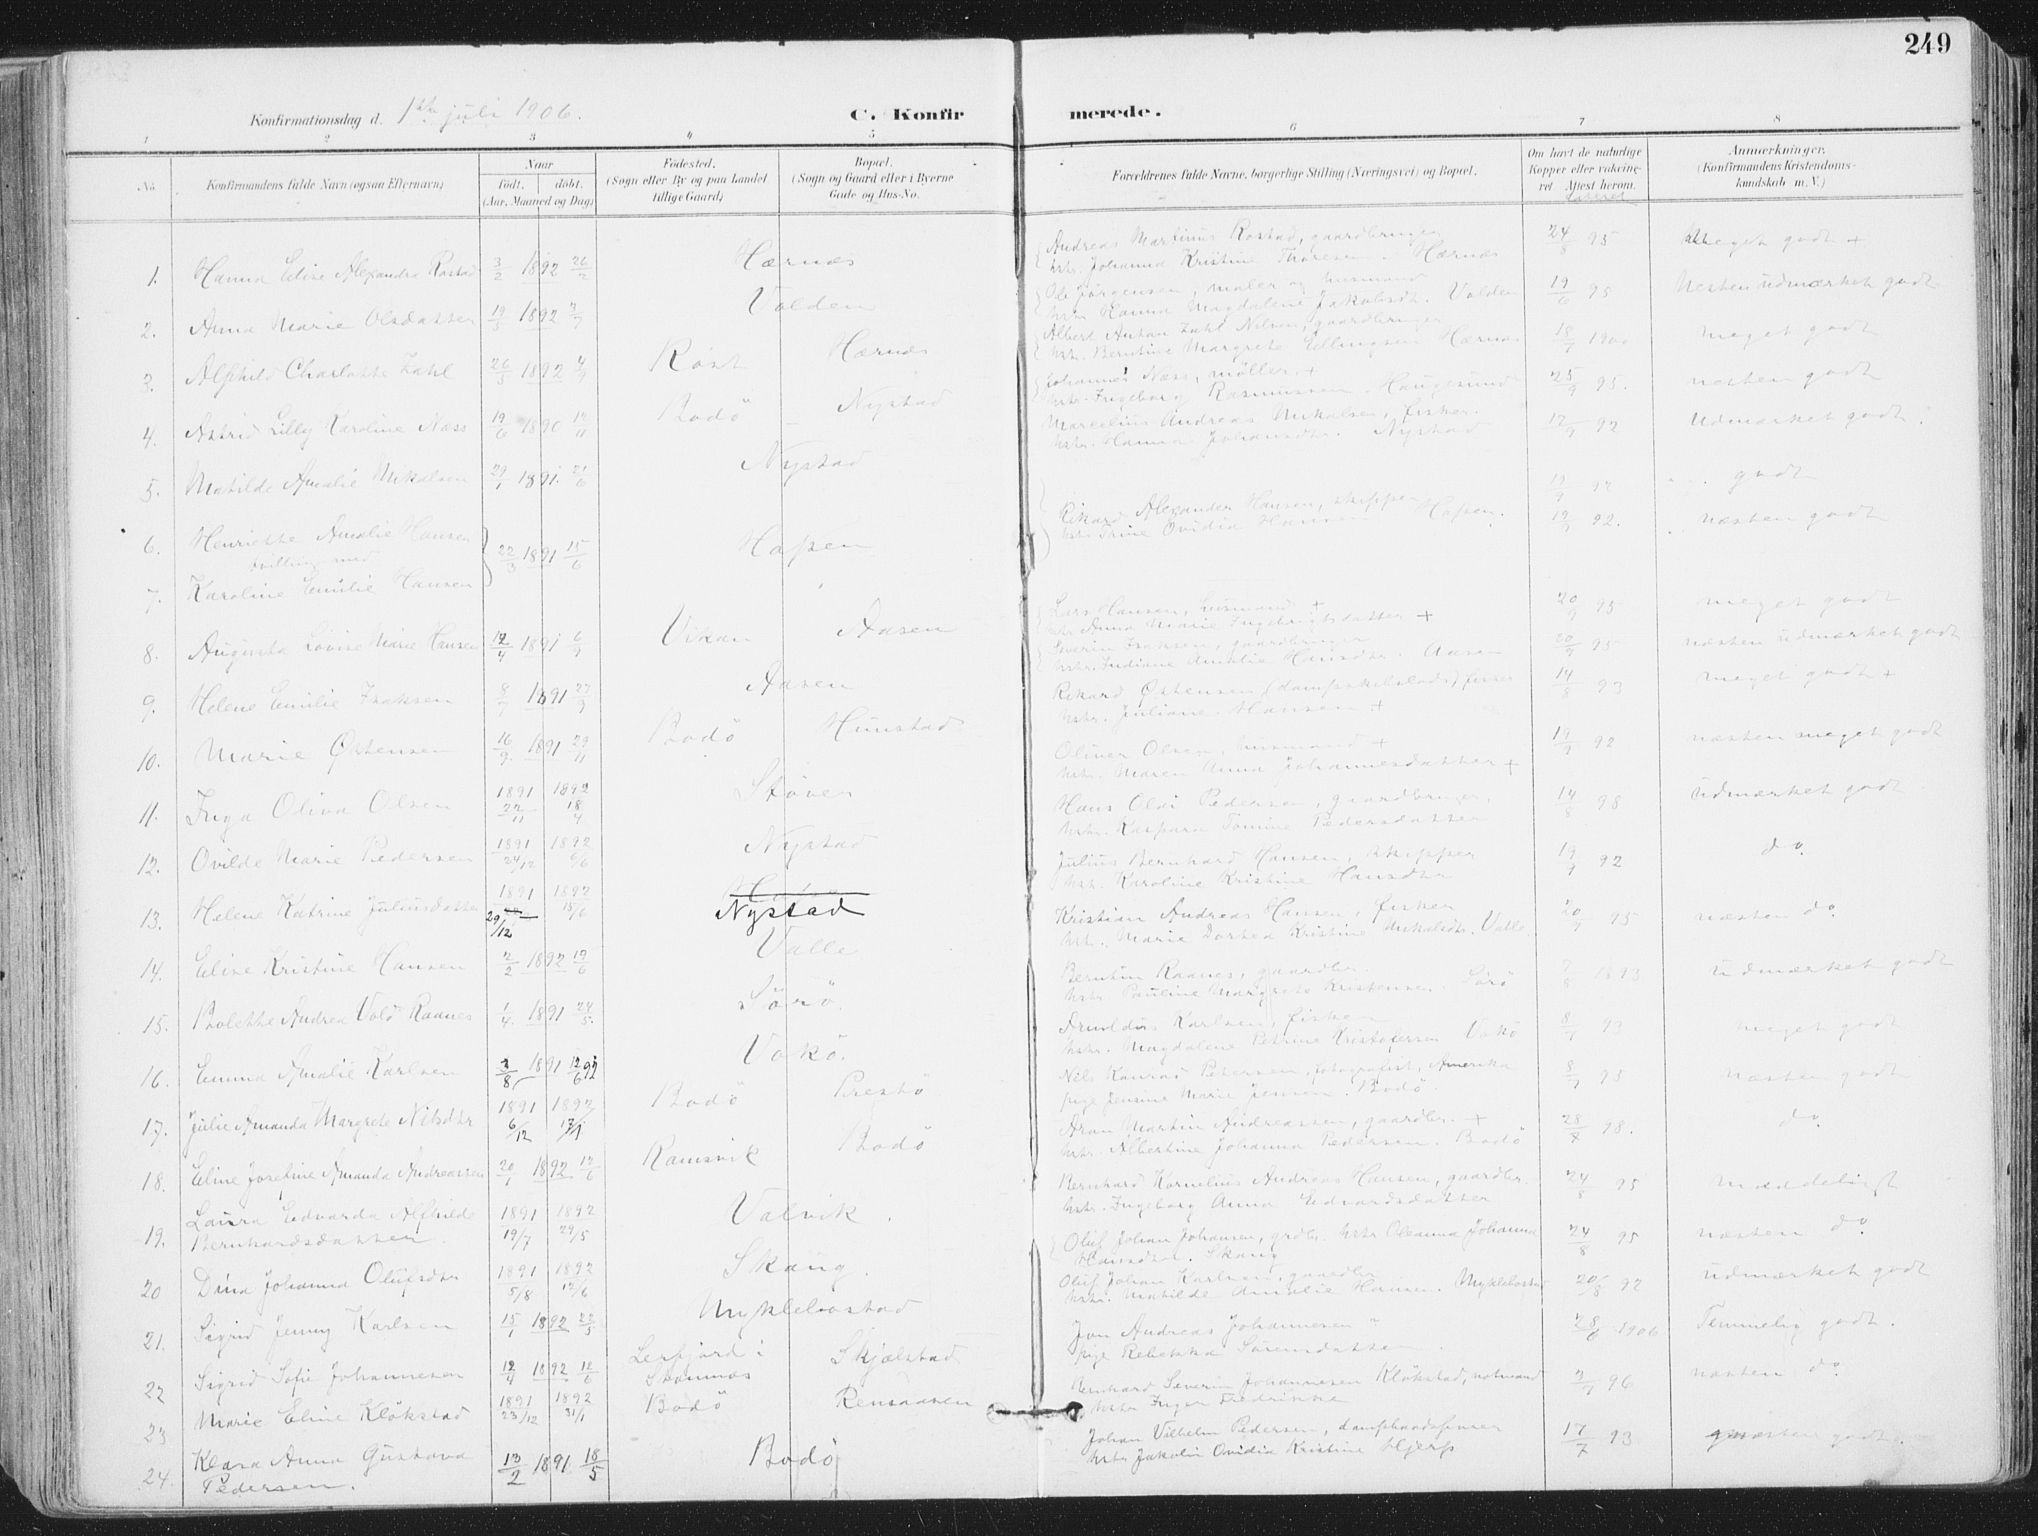 249
Konfirmationsdag d. 1ste juli 1906.
C. Konfir merede.
1 2 3 4 5 6 7 8
No.
Konfirmandens fulde Navn (ogsaa Efternavn)
Naar
født. døbt.
(Aar, Maaned og Dag)
Fødested.
(Sogn eller By og paa Landet
tillige Gaard)
Bopæl.
(Sogn og Gaard eller i Byerne
Gade og Hus-No.
Forældrenes fulde Navne, borgerlige Stilling (Næringsvei) og Bopæl.
Om havt de naturlige
Kopper eller vakcine-
ret. Attest herom.
Anmærkninger.
(Konfirmandens Kristendoms-
kundskab m. V.)
Andreas Martinus Rostad, gaardbruger
1. Hanna Elise Alexandra Rostad 3/2 1892 26/2 Hærnæs hstr. Johanna Kristine Thoresen. Hærnæs 24/8 95 Meget godt +
Ole Jørgensen, maler og husmand
2. Anna Marie Olsdatter 19/5 1892 3/7 Valden hstr. Hanna Magdalene Jakobsdtr. Valden 19/6 95 Næsten udmærket godt
Albert Anton Zahl Nilsen, gaardbruger
3. Alfhild Charlotte Zahl 26/5 1892 4/9 Røst Hærnæs hstr. Berntine Margrete Ellingsen Hærnæs 18/7 1900 meget godt
Johannes Næss, møller +
4. Astrid Lilly Karoline Næss 19/6 1890 14/11 Bodö Nystad hstr. Ingeborg Rasmussen. Haugesund 25/9 95. næsten godt
Marcelius Andreas Mikalsen, fisker.
5. Matilde Amalie Mikalsen 29/1 1891 21/6 Nystad hstr. Hanna Johansdtr. Nystad 12/9 92 Udmærket godt
6. Henriette Amalie Hansen
tvilling med
22/3 1891 15/6 Hopen
7. Karoline Emilie Hansen
Rikard Alexander Hansen, skipper
hstr. Trine Ovidia Hansen Hopen.
19/9 92 godt
19/9 92. næsten godt
Lars Hansen, husmand +
8. Augusta Lovise Marie Hansen 12/4 1891 6/9 Vikan Aasen hstr. Anna Marie Ingebrigtsdatter + 20/9 95 meget godt
Severin Isaksen, gaardbruger
9. Helene Emilie Isaksen 8/7 1891 27/9 Aasen hstr. Indiane Amalie Hansdtr. Aasen 20/9 95 næsten udmærket godt
10. Marie Østensen 16/9 1891 29/11 Bodö Hunstad Rikard Østensen, fisker 14/8 93 meget godt +
hstr. Juliane Hansen +
11. Inga Oliva Olsen 1891 22/11 1892 18/4 Støver Oliver Olsen, husmand + 19/9 92 næsten meget godt
hstr. Maren Anna Johannesdatter +
12. Ovilde Marie Pedersen 1891 24/12 1892 6/6 Nystad Hans Oldi Pedersen, gaardbruger, 14/8 98 udmærket godt
hstr. Kaspara Tomine Pedersdatter
13. Helene Katrine Juliusdatter 1891 29/12 1892 15/6 Nystad Julius Bernhard Hansen, skipper 19/9 92 do.
hstr. Karoline Kristine Hansdtr
14. Elise Kristine Hansen 2/2 1892 19/6 Valle Kristian Andreas Hansen, fisker 20/9 95 næsten do.
hstr. Marie Dorthea Kristine Mikalsdtr. Valle
15. Bolette Andrea Vold Raanes 1/4. 1891 24/5. Sørø Berntin Raanes, gaardbr. 1893 Udmærket godt
hstr. Pauline Margrete Kristensen. Sørø
16. Emma Amalie Karlsen 3/8 1891 12/6 92 Vokø. Arnoldus Karlsen, fisker 8/7 93 meget godt
hstr. Magdalene Petrine Kristofersen Vokø
17. Julie Amanda Margrete Nilsdtr 1891 6/12 1892 17/1 Bodö Prestö Nils Konrad Petersen, fotografist, Amerika 8/7 95 næsten godt
pige Jensine Marie Jensen. Bodö.
18. Eline Josefine Amanda Andreassen 20/1 1892 12/6 Ramsvik Bodö Aron Martin Andreassen, gaardbr. + 28/8 98. do.
hstr. Albertine Johanna Pedersen. Bodö
19. Laura Edvarda Alfhilde
Bernhardsdatter. 1891 19/7 1892 29/5 Valvik. Bernhard Kornelius Andreas Hansen, gaardbr. 24/8 95 maadeligt
hstr. Ingeborg Anna Edvardsdatter
20 Dina Johanna Olufsdtr 1891 5/8 1892 12/6 Skaug. Oluf Johan Johansen, grdbr. hstr Oleanna Johanna 24/8 95 næsten do
Hansdtr. Skaug
21. Sigrid Jenny Karlsen 15/1 1892 22/5 Myklebostad Oluf Johan Karlsen, gaardbr 20/8 92 udmærket godt
hstr. Matilde Amalie Hansen. Myklebostad
22 Sigrid Sofie Johannesen 12/4 1892 12/6 Lerfjord i
Stamnæs Skjælstad Jon Andreas Johannesen 28/6 1906 Temmelig godt.
pige Rebekka Sørensdatter
23 Marie Eline Kløkstad 1891 23/12 1892 31/1 Bodö Rensaasen Bernhard Severin Johannesen Kløkstad, notmand 3/7 96 næsten do.
hstr Inger Fredrikke
24. Klara Anna Gustava
Pedersen. 13/2 1891 18/5 Bodö Johan Vilhelm Pedersen, 17/7 93 næsten godt.
hstr Jakobin Ovidia Kristine Hjerp